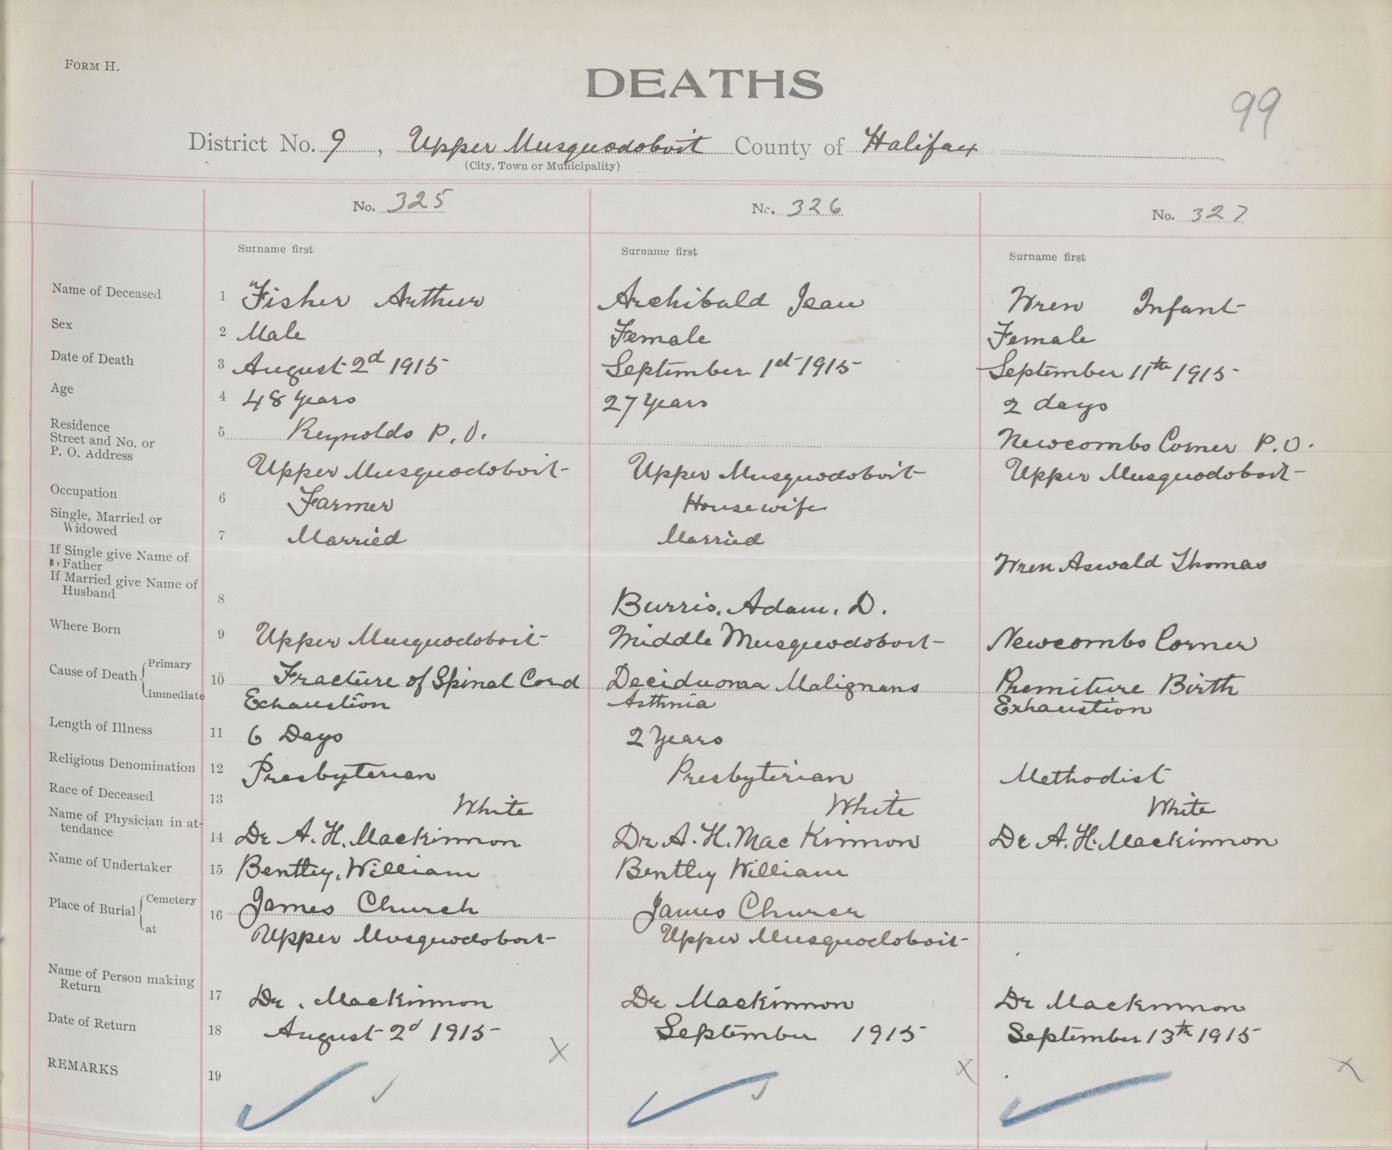 FORM H.
DEATHS
99
District No. 9, Upper Musquodoboit County of Halifax
(City, Town or Municipality)
No. 325 No. 326 No. 327
Surname first Surname first Surname first
Name of Deceased 1 Fisher Arthur Archibald Jean Wren Infant
Sex 2 Male Female Female
Date of Death 3 August 2d 1915 September 1st 1915 September 11th 1915
Age 4 48 Years 27 Years 2 days
Residence
Street and No. or 5 Reynolds P.O. Newcombs Corner P.O.
P. O. Address Upper Musquodoboit Upper Musquodoboit Upper Musquodoboit
Occupation 6 Farmer Housewife
Single, Married or
Widowed 7 Married Married
If Single give Name of
Father Wren Aswald Thomas
If Married give Name of
Husband 8 Burris, Adam, D.
Where Born 9 Upper Musquodoboit Middle Musquodoboit Newcombs Corner
Cause of Death Primary 10 Fracture of Spinal Cord Deciduoma Malignans Premiture Birth
Immediate Exhaustion Asthnia Exhaustion
Length of Illness 11 6 Days 2 Years
Religious Denomination 12 Presbyterian Presbyterian Methodist
Race of Deceased 13 White White White
Name of Physician in at-
tendance 14 Dr A. H. Mackinnon Dr A. H. Mac Kinnon Dr A. H. Mackinnon
Name of Undertaker 15 Bentley, William Bentley William
Place of Burial Cemetery 16 James Church James Churcr
at Upper Musquodoboit Upper Musquodoboit
Name of Person making
Return 17 Dr. Mackinnon Dr Mackinnon Dr Mackinnon
Date of Return 18 August 2d 1915 September 1915 September 13th 1915
REMARKS 19